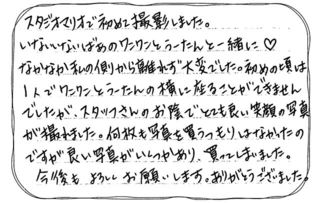 スタジオマリオで初めて撮影しました。
いないいないばあのワンワンとうーたんと一緒に♡
なかなか私の側から離れず大変でした。初めの頃は
1人でワンワンとうーたんの横に座ることができません
でしたが、スタッフさんのお陰でとても良い笑顔の写真
が撮れました。何枚も写真を買うつもりはなかったの
ですが良い写真がいくつかあり、買ってしまいました。
今後もよろしくお願いします。ありがとうございました。